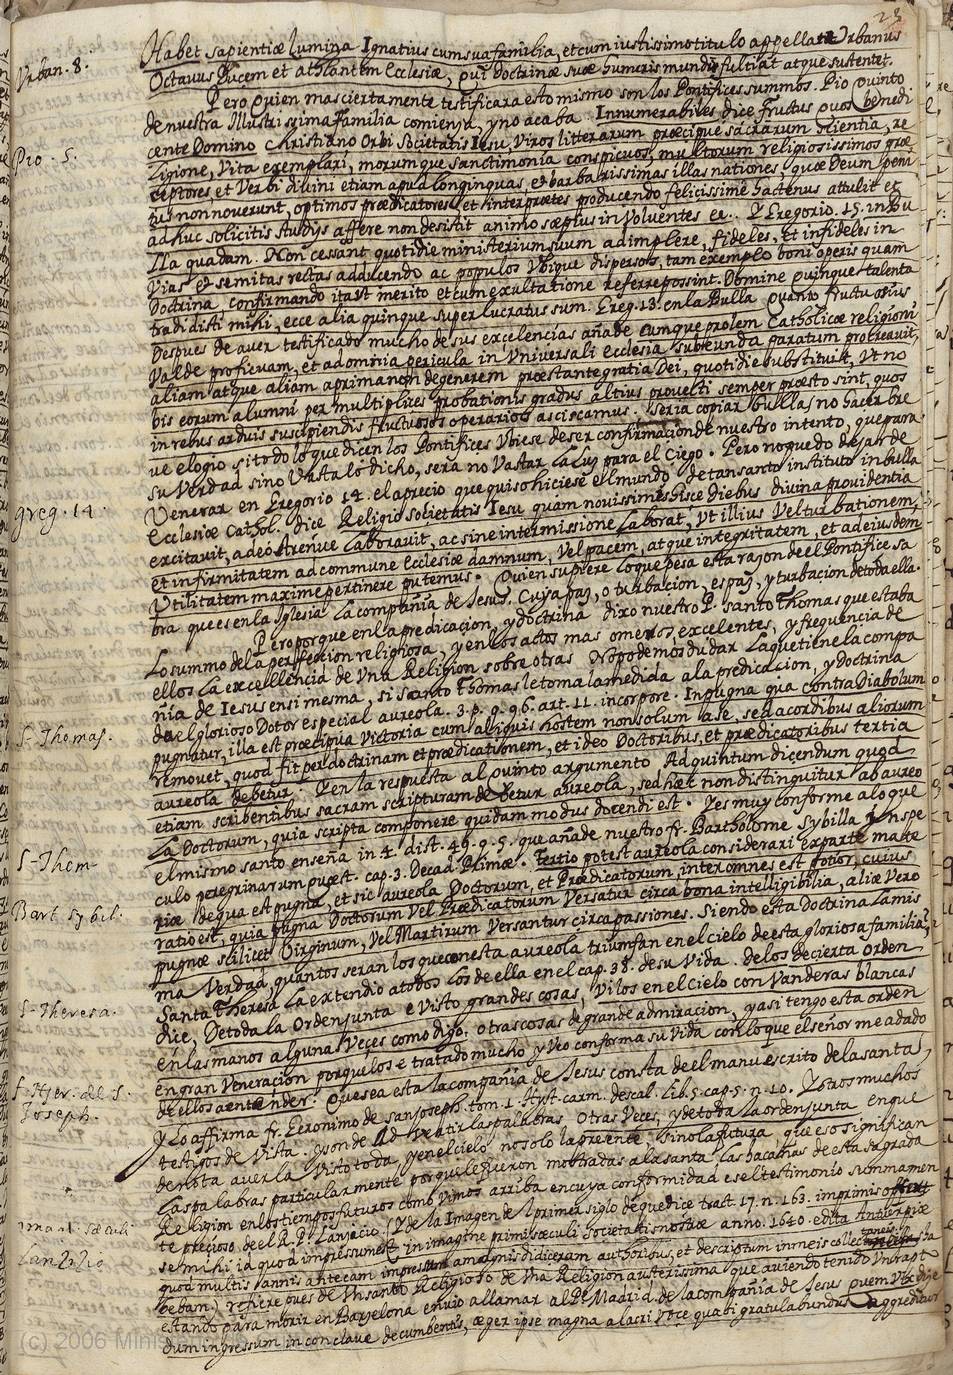 23
Habet sapientiæ lumina Ignatius cum sua familia, et cum iustissimo titulo appellate Urbanus
Urban. 8.
Octavus Ducem et athlantem Ecclesiæ, qui doctrinæ suæ humeris mundum fultiat atque sustentet.
Pero quien mas ciertamente testificara esto mismo son los Pontifices summos. Pio quinto
de nuestra Illustrissima familia comienza, y no acaba. Innumerabiles dice fructus quos benedi
Pio. 5.
cente Domino Christiano Orbi Societatis Iesu, Viros litterarum præcipue sacrarum scientia, re
ligione, Vita exemplari, morumque sanctimonia conspicuos, multorum religiosissimos præ
ceptores, et Verbi divini etiam apud longinquas, et barbarissimas illas nationes, quæ Deum peni
tus non noverunt, optimos prædicatores, et interpretes producendo felicissime hactenus attulit et
adhuc solicitis studijs afferre non desistit animo sæpius in Voluentes ec.. Y Gregorio. 15. in Bu
lla quadam. Non cessant quotidie ministerium suum adimplere, fideles, et infideles in
Vias et semitas rectas adducendo ac populos Ubique dispersos, tam exemplo boni operis quam
Doctrina confirmando ita ut merito et cum exultatione referre possint. Domine quinque talenta
tradidisti mihi, ecce alia quinque super lucratus sum. Greg. 13. en la Bulla Quanto fructuosius
Despues de aver testificado mucho de sus excelencias añade cumque prolem Catholicæ religioni
Valde proficuam, et ad omnia pericula in Universali ecclesia subeunda paratum protreavit,
aliam atque aliam a prima non degenerem præstante gratia Dei, quotidie substituit, Ut no
bis eorum alumni per multiplices probationis gradus altius provecti semper præsto sint, quos
in rebus arduis suscipiendis fructuosos operarios asciscamus. Seria copiar bullas no hacer bre
ve elogio si todo lo que dicen los Pontifices Vbiese de ser confirmacion de nuestro intento, que para
su Verdad sino Vasta lo dicho, sera no Vastar la luz para el Ciego. Pero no puedo dejar de
greg. 14.
Venerar en Gregorio 14. el aprecio que quiso hiciese el mundo de tan santo instituto in bulla
Ecclesiæ Cathol. dice Religio societatis Iesu quam novissimis hisce diebus divina providentia
excitavit, adeo strenue laboravit, ac sine intermissione laborat, Ut illius Vel turbationem,
et infirmitatem ad commune Ecclesiæ damnum, Vel pacem, atque integritatem, et ad eiusdem
Utilitatem maxime pertinere putemus. Quien supiere lo que pesa esta razon de el Pontifice sa
bra que es en la Iglesia la compañia de Jesus. Cuya paz, o turbacion, es paz, y turbacion de toda ella.
Pero porque en la predicacion, y doctrina dixo nuestro P. santo Thomas que estaba
lo summo de la perfeccion religiosa, y en los actos mas o menos excelentes, y frequencia de
ellos la excellencia de Vna Religion sobre otras No podemos dudar la que tiene la compa
ñia de Iesus en si mesma, si santo Thomas le toma la medida a la predicacion, y doctrina
S. Thomas.
de el glorioso Dotor especial aureola. 3. p. q. 96. art. 11. incorpore. In pugna qua contra Diabolum
pugnatur, illa est præcipua Victoria cum aliquis hostem non solum a se, sed a cordibus aliorum
removet, quod fit per doctrinam et prædicationem, et ideo Doctoribus, et prædicatoribus tertia
aureola debetur. Y en la respuesta al quinto argumento Ad quintum dicendum quod
etiam scribentibus sacram scripturam debetur aureola, sed hæc non distinguitur ab aureo
la Doctorum, quia scripta componere quidam modus docendi est. Y es muy conforme a lo que
S. Thom
el mismo santo enseña in 4. dist. 49. q. 5. que añade nuestro fr. Bartholome sybilla in spe
culo peregrinarum quæst. cap. 3. Decad. Primæ. Tertio potest aureola considerari ex parte mate
Bart. sybil.
riæ de qua est pugna, et sic aureola Doctorum, et Prædicatorum inter omnes est potior, cuius
ratio est, quia pugna Doctorum Vel Prædicatorum Versatur circa bona intelligibilia, aliæ Vero
pugnæ scilicet Virginum, Vel Martirum Versantur circa passiones. Siendo esta Doctrina la mis
ma Verdad, quantos seran los que con esta aureola triumfan en el cielo de esta gloriosa familia?
S. Theresa.
Santa Theresa la extendio a todos los de ella en el cap. 38. de su Vida. de los de cierta orden
dice, De toda la Orden junta e Visto grandes cosas, Vilos en el cielo con Vanderas blancas
en las manos algunas Veces como digo. otras cosas de grande admiracion, y asi tengo esta orden
en gran Veneracion porque los e tratado mucho y Veo conforma su Vida con lo que el señor me a dado
de ellos a entender. Que sea esta la compañia de Jesus consta de el manuescrito de la santa,
f. Hier. de S.
Joseph.
y lo affirma fr. Geronimo de san joseph. tom. 1. Hyst. carm. descal. Lib. 5. cap. 5. n. 10. Y otros muchos
testigos de Vista. y son de las palabras Otras Veces, y de toda la orden junta en que
denota averla Visto toda, y en el cielo no solo la presente, sino la futura, que eso significan
las palabras particularmente porque le fueron mostradas a la santa las hacañas de esta sagrada
Religion en los tiempos futuros como Vimos arriba en cuya conformidad es el testimonio summamen
te precioso de el R. P. Lancicio. (Y de la Imagen de el primer siglo de que dice tract. 17. n. 163. imprimis
imari. sæculi
se mihi id quod impressum est in imagine primi sæculi Societatis nostræ anno. 1640. edita Antuerpiæ
Lancizio
quod multis annis ante cam impressum a magnis didiceram authoribus, et descriptum in meis
bebam.) refiere pues de Un santo Religioso de Vna Religion austerissima que aviendo tenido Un rapt
estando para morir en Barzelona envio a llamar al P. Madrid de la compañia de Jesus quem Ubi
dum ingressum in conclave decumbentis, æger ipse magna alacri Voce quasi gratulabundus aggreditur
(c) 2006 Minis